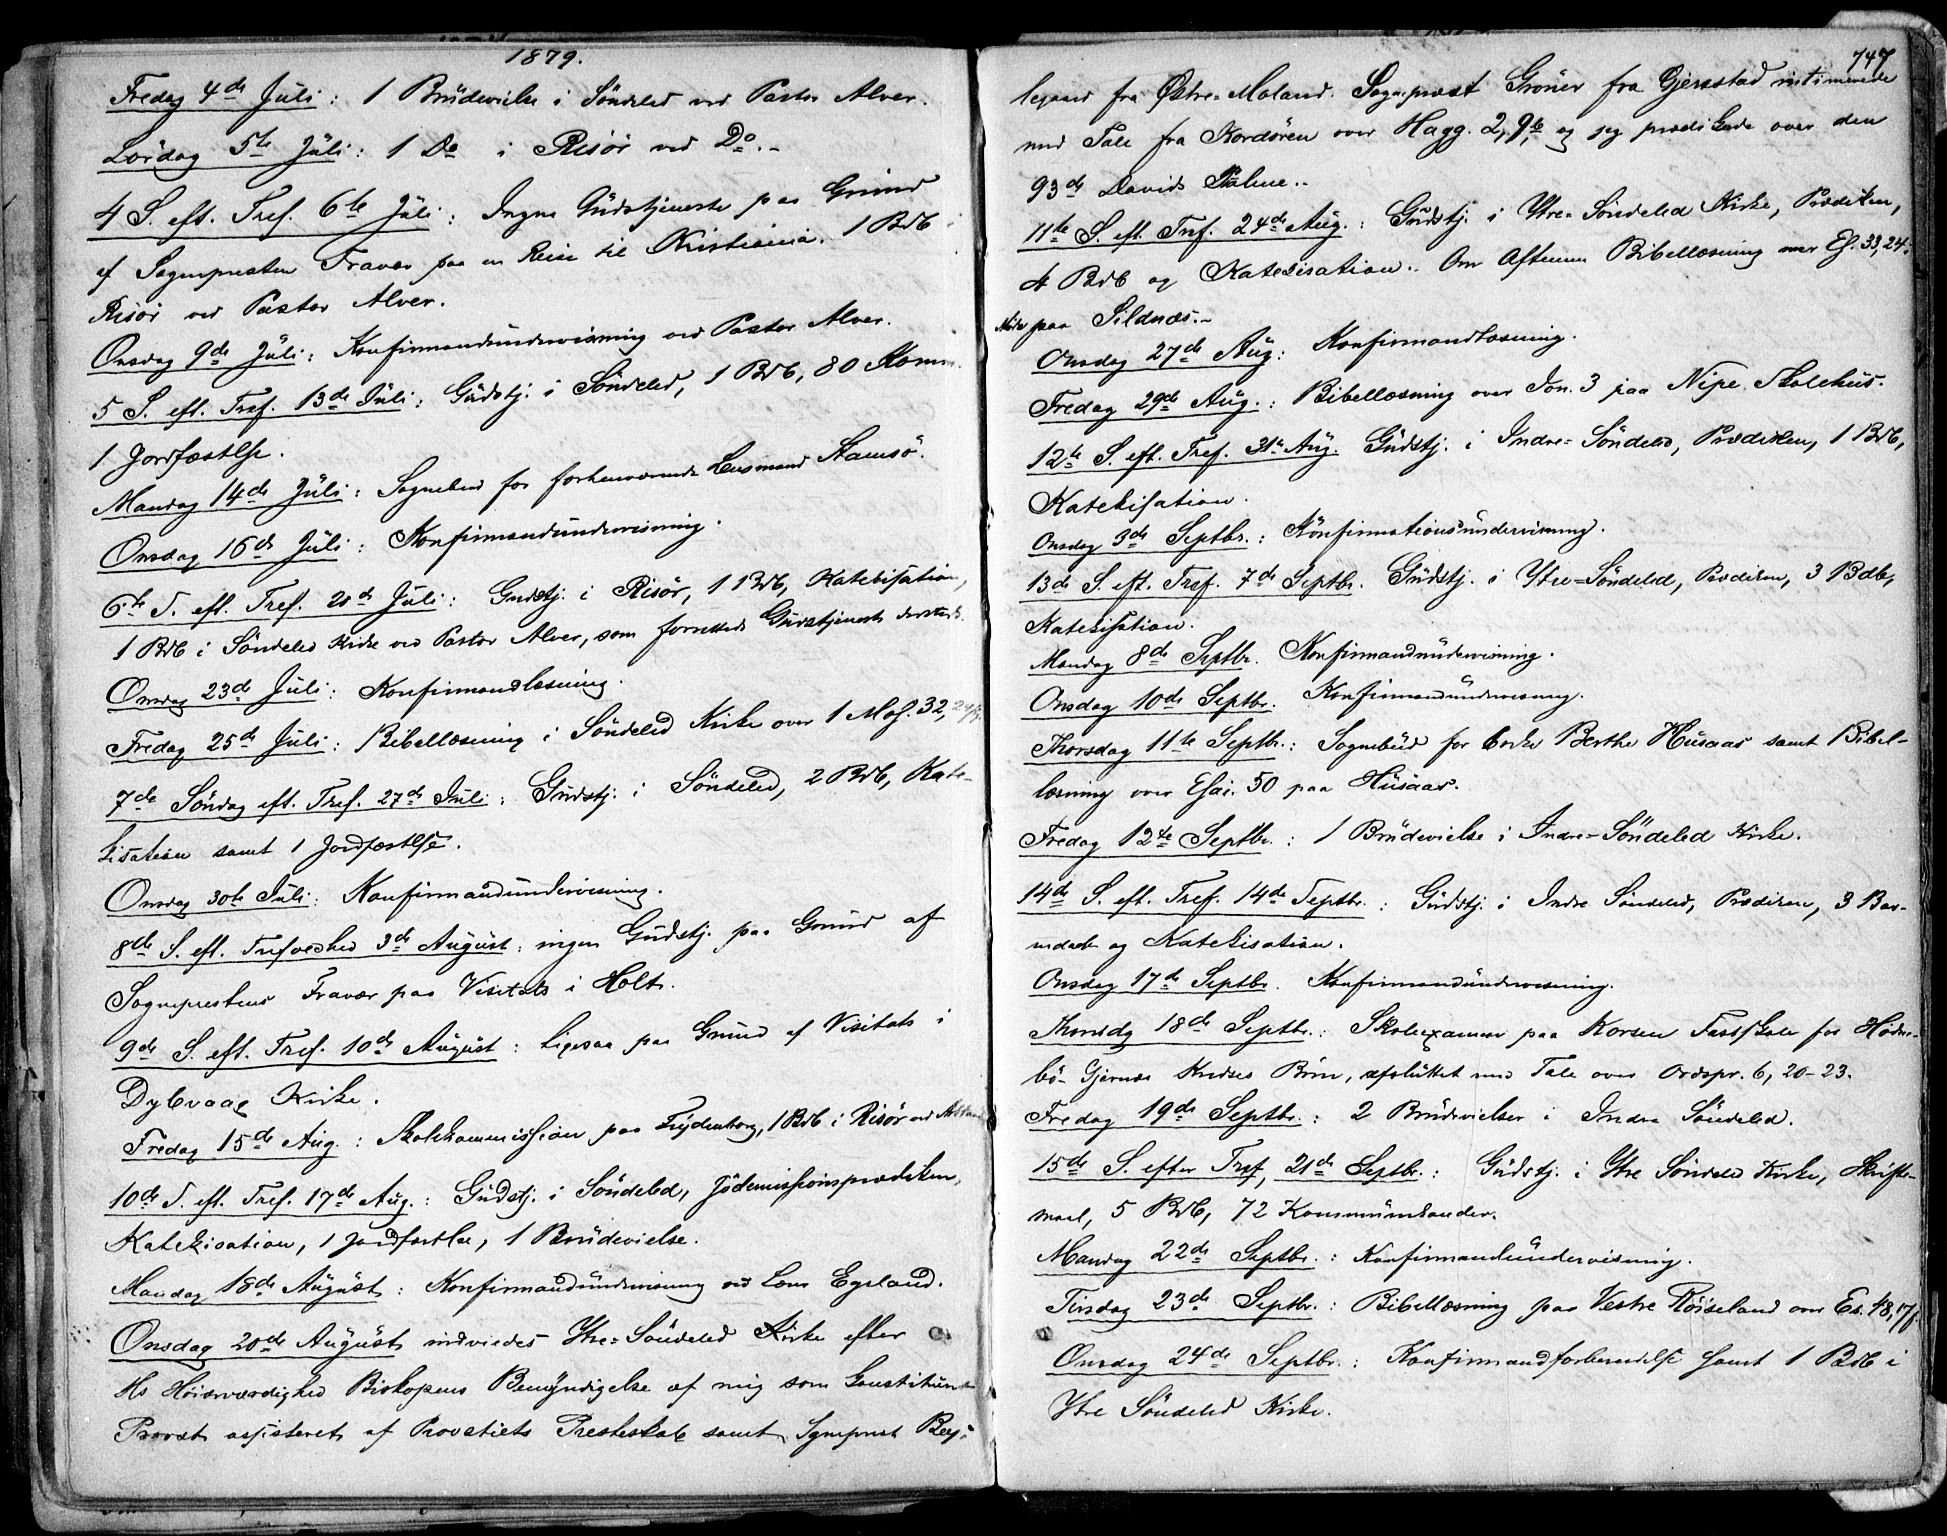 1879.
Fredag 4de Juli: 1 Brudevielse i Söndeled ved Pastor Alver.
Lördag 5te Juli: 1 Do i Risör ved Do.-
4 S. eft. Tref. 6te Juli: Ingen Gudstjeneste paa Grund
af Sognepresten Fravær paa en Reise til Kristiania. 1 Bdb i
Risör ved Pastor Alver.
Onsdag 9de Juli: Konfirmandundervisning ved Pastor Alver.
5 S. eft. Tref. 13de Juli: Gudstj. i Söndeled, 1 Bdb, 80 Komm.
1 Jordfæstelse.
Mandag 14de Juli: Sognebud for forhenværende Lensmand Stamsö.
Onsdag 16de Juli: Konfirmandundervisning.
6te S. eft. Tref. 20de Juli: Gudstj. i Risör, 1 Bdb, Katekisation,
1 Bdb i Söndeled Kirke ved Pastor Alver, som forrettede Gudstjeneste dersteds.
Onsdag 23de Juli: Konfirmandlæsning.
Fredag 25de Juli: Bibellæsning i Söndeled Kirke over 1 Mos. 32,
7de Söndag eft. Tref. 27de Juli: Gudstj. i Söndeled, 2 Bdb, Kate-
kisation samt 1 Jordfæstelse.
Onsdag 30te Juli: Konfirmandundervisning.
8de S. eft. Trefoldhed 3de August: ingen Gudstj. paa Grund af
Sogneprestens Fravær paa Visitats i Holt.
9de S. eft. Tref. 10de August: Ligesaa paa Grund af Visitats i
Dybvaag Kirke.
Fredag 15de Aug.: Skolekommission paa Frydenborg, 1 Bdb i Risör ved
10de S. eft. Tref. 17de Aug.: Gudstj. i Söndeled, Jödemissionsprædiken,
Katekisation, 1 Jordfæstelse, 1 Brudevielse.
Mandag 18de August: Konfirmandundervisning ved Lærer Egeland.
Onsdag 20de August indviedes Ytre-Söndeled Kirke efter
Hs Höiærværdighed Biskopens Bemyndigelse af mig som Constitueret
Provst assisteret af Provstiets Presteskab samt Sogneprest Bey-
747
legaard fra Østre-Moland. Sogneprest Gröner fra Gjerestad intimerede
med Tale fra Kordören over Hagg. 2, 9b og jeg prædikede over den
93de Davids Psalme..
11te S. eft. Tref. 24de Aug.: Gudstj. i Ytre-Söndeled Kirke, Prædiken,
4 Bdb og Katekisation.. Om Aftenen Bibellæsning over Es. 33, 24.
Nedre paa Sildnæs.-
Onsdag 27de Aug: Konfirmandlæsning.
Fredag 29de Aug.: Bibellæsning over Jon. 3 paa Nipe Skolehus.
12te S. eft. Tref. 31te Aug. Gudstj. i Indre-Söndeled, Prædiken, 1 Bdb,
Katekisation.
Onsdag 3de Septbr.: Konfirmationsundervisning.
13de S. eft. Tref. 7de Septbr. Gudstj. i Ytre-Söndeled, Prædiken, 3 Bdb,
Katekisation.
Mandag 8de Septbr. Konfirmandundervisning.
Onsdag 10de Septbr. Konfirmandundervisning.
Thorsdag 11te Septbr.: Sognebud for Enke Berthe Husaas samt Bibel-
læsning over Esai. 50 paa Husaas.
Fredag 12te Septbr.: 1 Brudevielse i Indre-Söndeled Kirke.
14de S. eft. Tref. 14de Septbr.: Gudstj. i Indre Söndeled, Prædiken, 3 Bar-
nedaab og Katekisation.
Onsdag 17de Septbr. Konfirmandundervisning.
Thorsdg 18de Septbr.: Skoleexamen paa Korsen Fastskole for Hödne-
bö-Gjernæs Kredses Börn, afsluttet med Tale over Ordspr. 6, 20-23.
Fredag 19de Septbr.: 2 Brudevielser i Indre Söndeled.
15de S. efter Tref, 21de Septbr.: Gudstj. i Ytre Söndeled Kirke, Skrifte-
maal, 5 Bdb, 72 Kommunikander.
Mandag 22de Septbr.: Konfirmandundervisning.
Tirsdag 23de Septbr.: Bibellæsning paa Vestre Röiseland over Es. 48, 17f.
Onsdag 24de Septbr.: Konfirmandforberedelse samt 1 Bdb i
Ytre Söndeled Kirke.